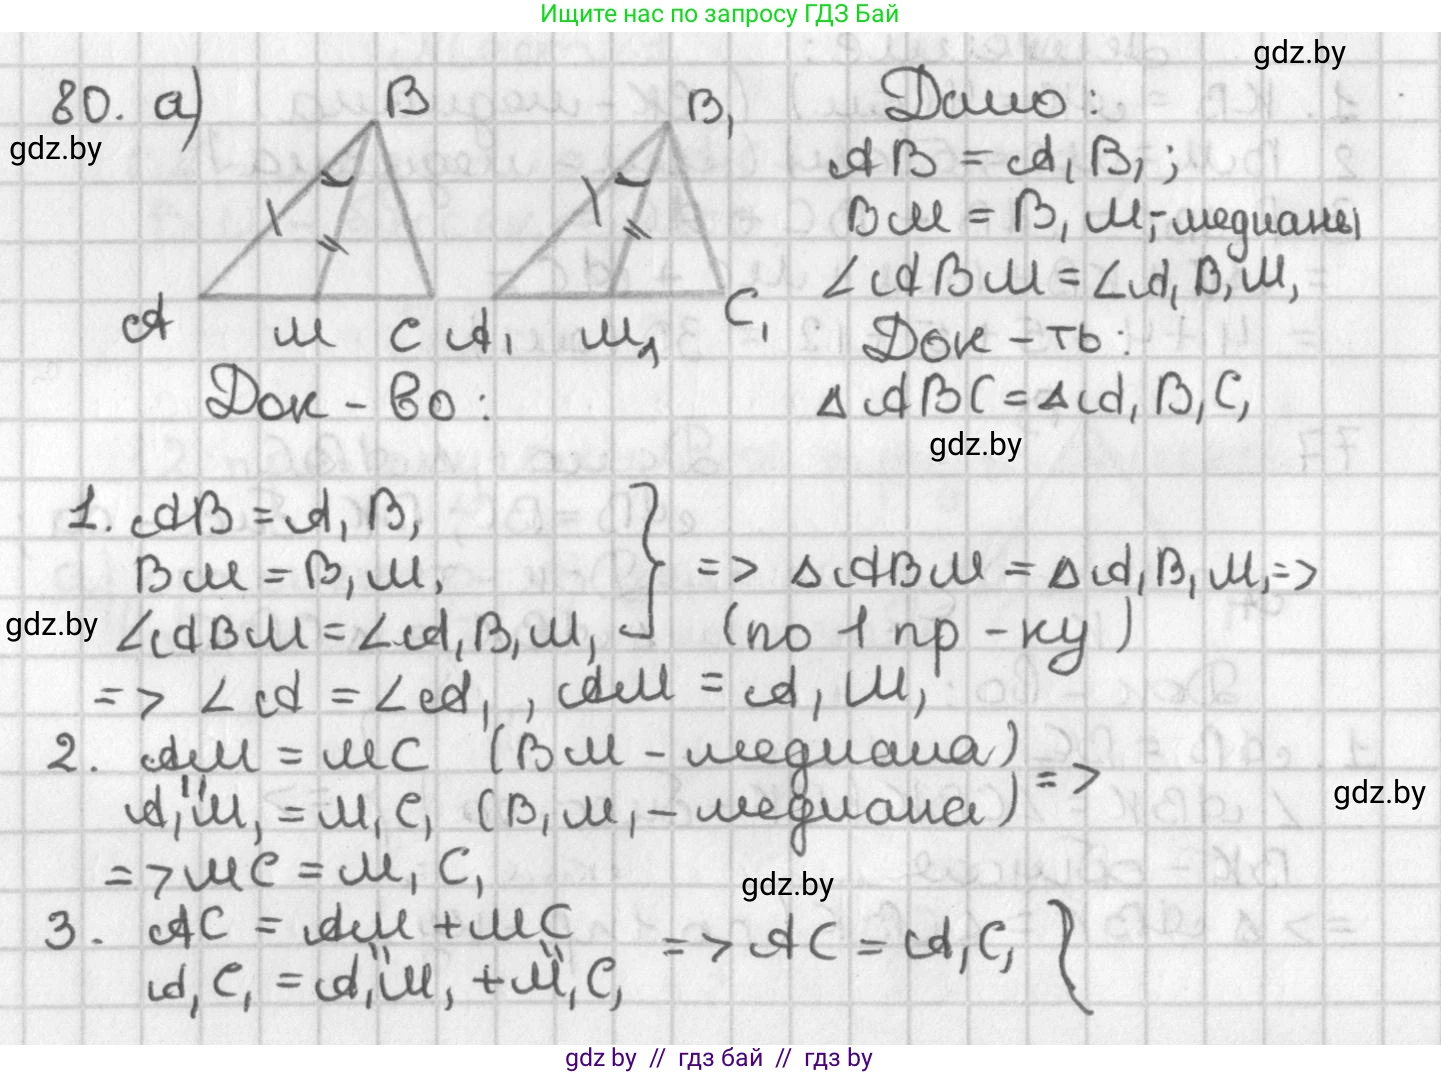 Ищите нас по запросу ГДЗ Бай
gdz.by
80. а)
B
B₁
gdz.by
A M C A₁ M₁ C₁
Дано:
AB = A₁B₁;
BM = B₁M₁-медианы
∠ABM = ∠A₁B₁M₁
Док-ть:
△ABC = △A₁B₁C₁
Док-во:
gdz.by
1. AB = A₁B₁
BM = B₁M₁
∠ABM = ∠A₁B₁M₁ } => △ABM = △A₁B₁M₁ =>
(по 1 пр-ку)
gdz.by
=> ∠A = ∠A₁, AM = A₁M₁
2. AM = MC (BM - медиана)
A₁M₁ = M₁C₁ (B₁M₁ - медиана) =>
gdz.by
=> MC = M₁C₁
gdz.by
3. AC = AM + MC
A₁C₁ = A₁M₁ + M₁C₁ => AC = A₁C₁ }
gdz by // гдз бай // гдз by